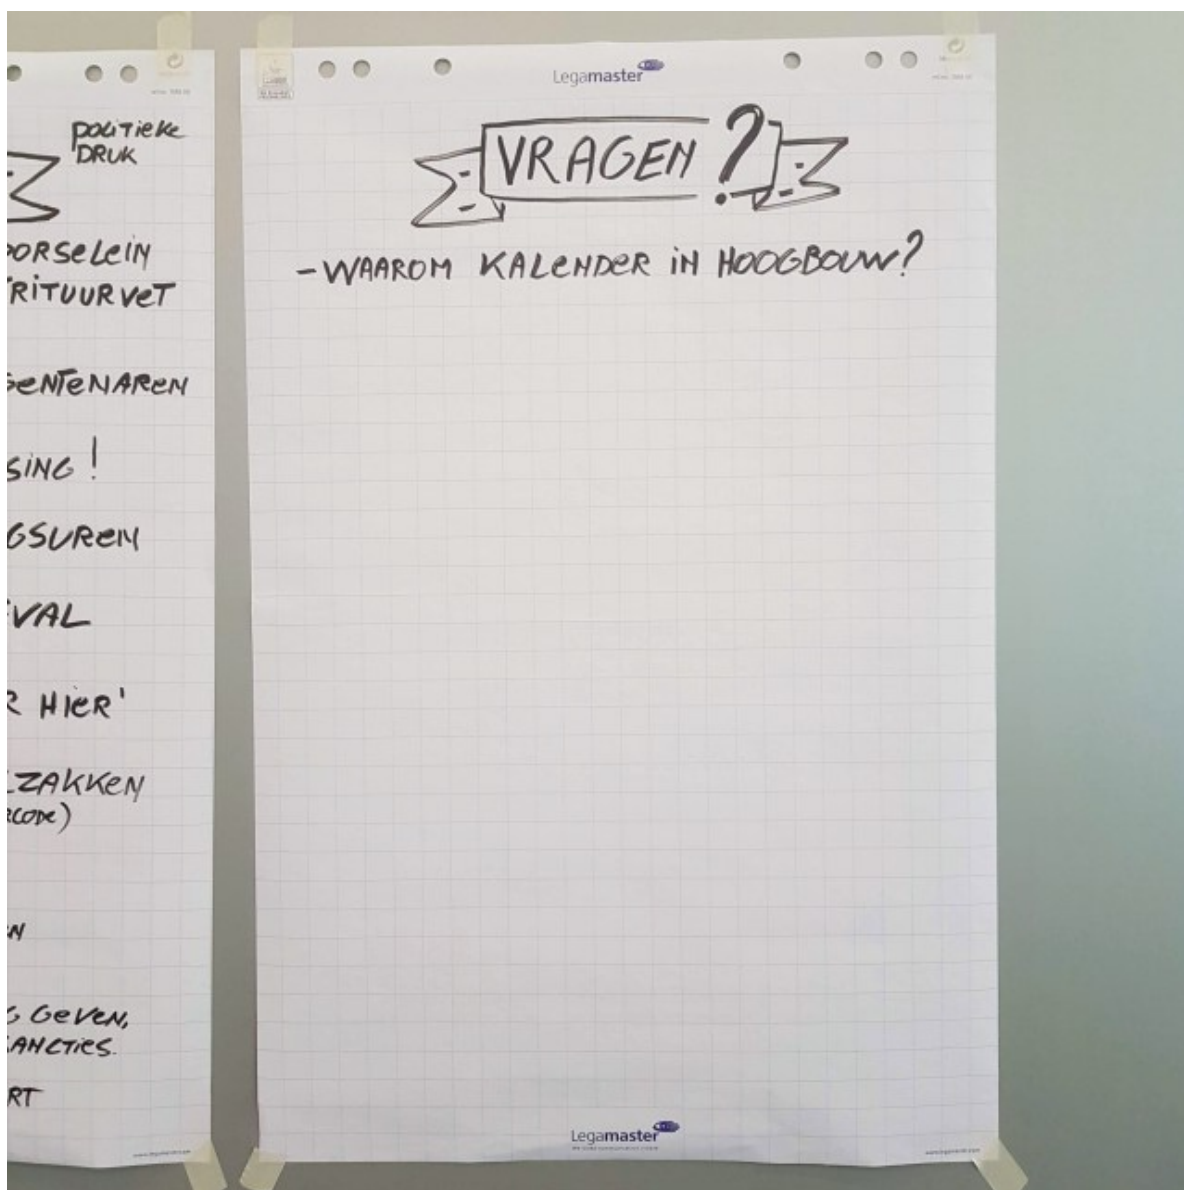 POLITIEKE
DRUK
ORSELEIN
RITUURVET
ENTENAREN
SING!
GSUREN
VAL
R HIER'
ZAKKEN
RCODE)
EN
G GEVEN,
SANCTIES.
RT
Legamaster
VRAGEN?
- WAAROM KALENDER IN HOOGBOUW?
Legamaster